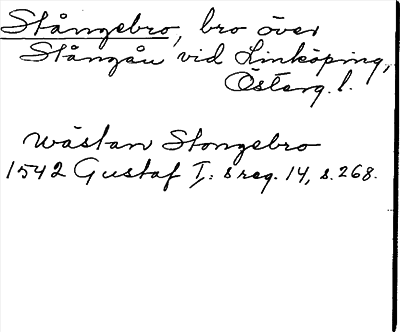 Stångebro, bro över
Stångån vid Linköping,
Österg. l.
Wästan Stongebro
1542 Gustaf I: s reg. 14, s. 268.